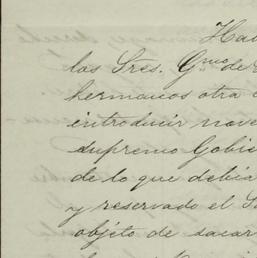 Ha
los Sres. Gmo de
hermanos otra
introducir nove
supremo Gobie
de lo que debia
y reservado el S
objeto de sacar